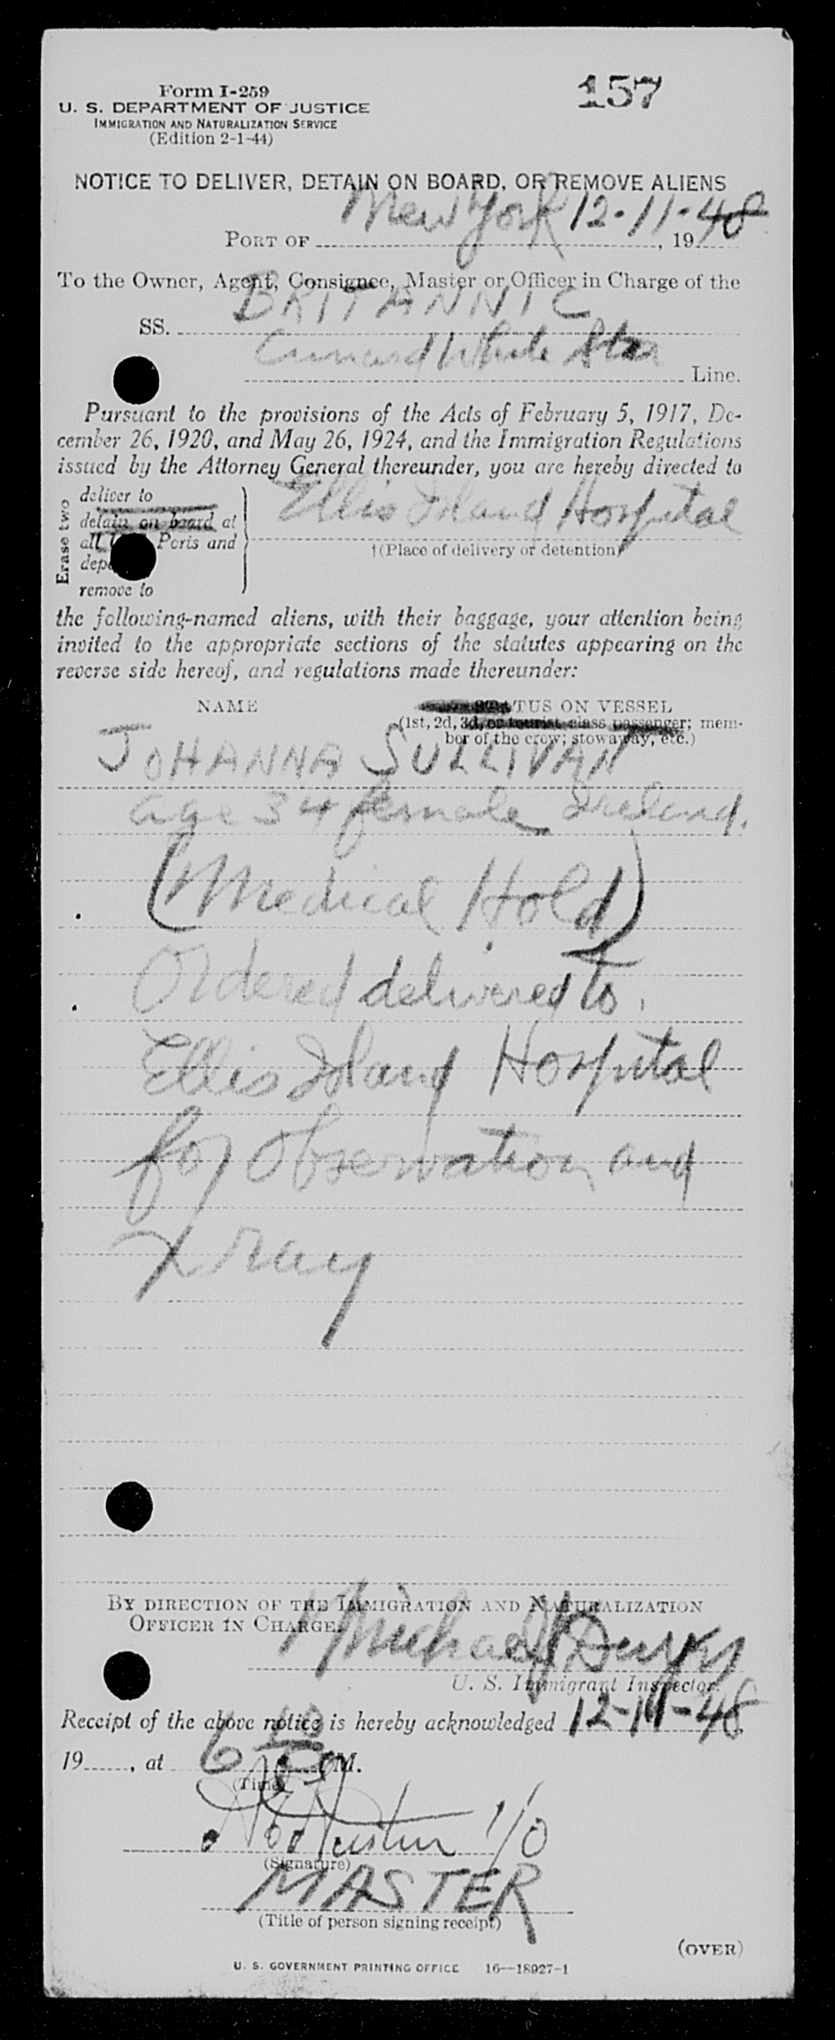 Form I-259
157
U. S. DEPARTMENT OF JUSTICE
IMMIGRATION AND NATURALIZATION SERVICE
(Edition 2-1-44)
NOTICE TO DELIVER, DETAIN ON BOARD, OR REMOVE ALIENS
PORT OF New York 12-11-48, 19
To the Owner, Agent, Consignee, Master or Officer in Charge of the
SS. BRITANNIC
Cunard White Star Line.
Pursuant to the provisions of the Acts of February 5, 1917, De-
cember 26, 1920, and May 26, 1924, and the Immigration Regulations
issued by the Attorney General thereunder, you are hereby directed to
Erase two
deliver to
detain on board at
all Ports and
remove to
Ellis Island Hospital
†(Place of delivery or detention)
the following-named aliens, with their baggage, your attention being
invited to the appropriate sections of the statutes appearing on the
reverse side hereof, and regulations made thereunder:
NAME STATUS ON VESSEL
(1st, 2d, 3d, or tourist class passenger; mem-
ber of the crew; stowaway, etc.)
JOHANNA SULLIVAN
age 34 female Ireland.
(Medical Hold)
Ordered delivered to
Ellis Island Hospital
for Observation and
X ray
BY DIRECTION OF THE IMMIGRATION AND NATURALIZATION
OFFICER IN CHARGE.
Michael
U. S. Immigrant Inspector.
Receipt of the above notice is hereby acknowledged 12-11-48,
19, at 6 M.
(Time)
(Signature)
MASTER
(Title of person signing receipt)
(OVER)
U. S. GOVERNMENT PRINTING OFFICE 16—18927-1